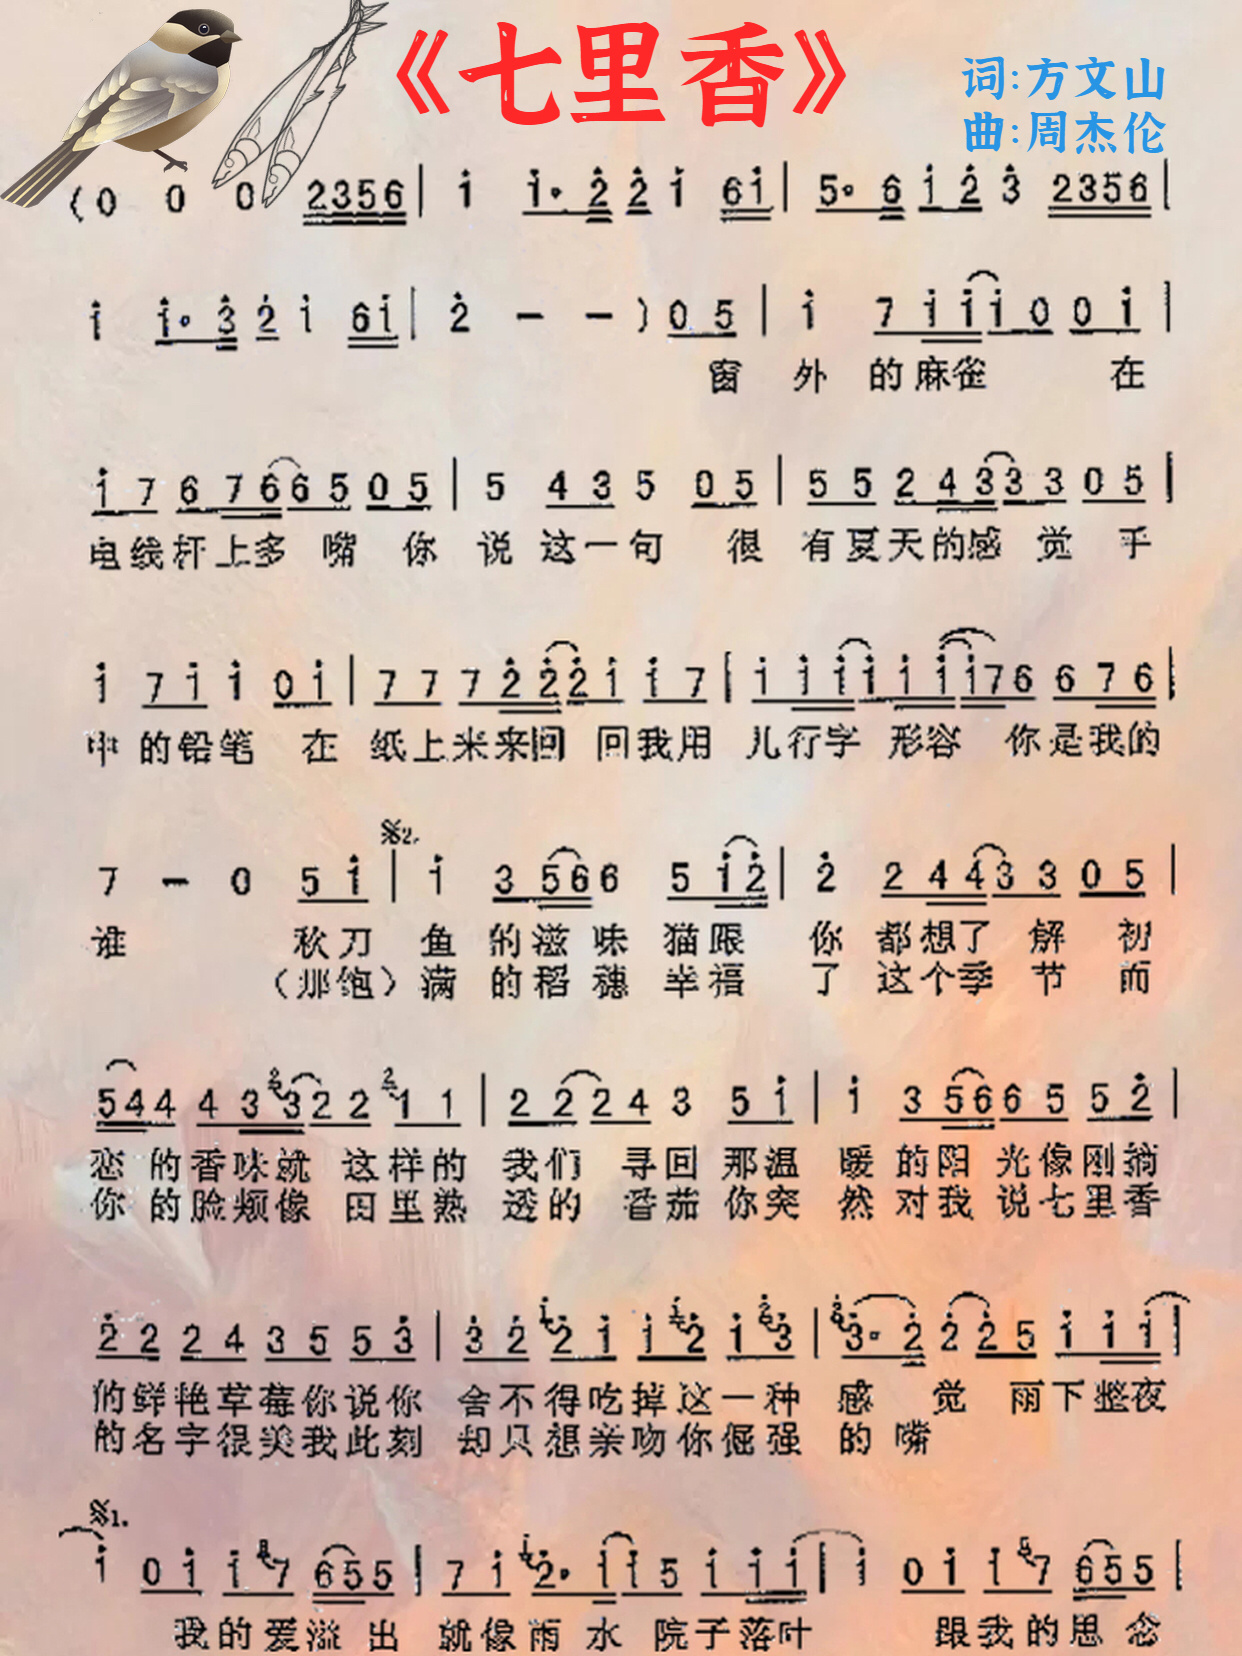 《七里香》
词:方文山
曲:周杰伦
(0 0 0 2356 | i i·2 2 i 6i | 5·6 i2 3 2356 |
i i·3 2 i 6i | 2 - - ) 0 5 | i 7 i i i 0 0 i |
窗 外 的麻雀 在
i 7 6 7 6 6 5 0 5 | 5 4 3 5 0 5 | 5 5 2 4 3 3 3 0 5 |
电线杆上多 嘴 你 说 这一句 很 有夏天的感 觉 手
i 7 i i 0 i | 7 7 7 2 2 2 i i 7 | i i i i i i i 7 6 6 7 6 |
中 的铅笔 在 纸上来来回 回我用 几行字 形容 你是我的
𝄋2.
7 - 0 5 i | i 3 5 6 6 5 i 2 | 2 2 4 4 3 3 0 5 |
谁 秋刀 鱼 的滋 味 猫跟 你 都想了 解 初
(那饱)满 的稻 穗 幸福 了 这个季 节 而
5 4 4 4 3 2 3 2 2 2 1 1 | 2 2 2 4 3 5 i | i 3 5 6 6 5 5 2 |
恋 的香味就 这样的 我们 寻回 那温 暖 的阳 光像刚摘
你 的脸颊像 田里熟 透的 番茄 你突 然 对我 说七里香
2 2 2 4 3 5 5 3 | 3 2 i 2 i i i 2 i 2 3 | 2 3·2 2 2 5 i i i |
的鲜艳草莓你说你 舍不得吃掉这一种 感 觉 雨下整夜
的名字很美我此刻 却只想亲吻你倔强 的 嘴
𝄋1.
i 0 i i 7 6 5 5 | 7 i i 2· i i 5 i i i | i 0 i i 7 6 5 5 |
我的爱溢 出 就像雨 水 院子落叶 跟我的思 念